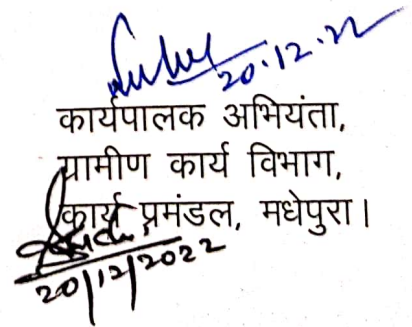 20.12.22
कार्यपालक अभियंता,
ग्रामीण कार्य विभाग,
कार्य प्रमंडल, मधेपुरा।
20/12/2022